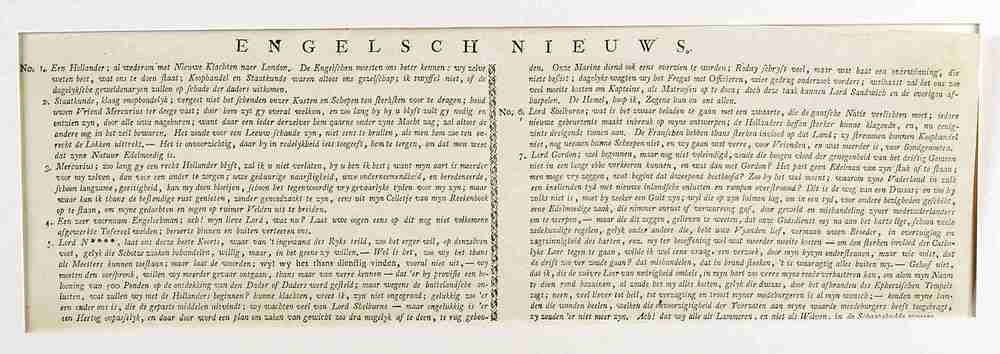 ENGELSCH NIEUWS.
No. 1. Een Hollander; al wederom met Nieuwe Klachten naar London. De Engelschen moesten ons beter kennen: wy zelve
weten best, wat ons te doen staat; Koophandel en Staatkunde waren altoos ons gezelschap; ik twyffel niet, of de
dagelyksche geweldenaryen zullen op schade der daders uitkomen.
2. Staatkunde, klaag onophoudelyk; vergeet niet het schenden onzer Kosten en Schepen ten sterksten voor te dragen; houd
uwen Vriend Mercurius ter degen vast; door hem zyt gy vooral welkom, en zoo lang by by u blyft zult gy nodig en
ontzien zyn, door alle uwe nageburen; want daar een ieder dezelver hem gaarne onder zyne Macht zag, zal altoos de
andere nog in het veil bewaren. Het zoude voor een Leeuw schande zyn, niet eens te brullen, als men hem zoo ten on-
rechte de Lokken uittrekt. — Het is onvoorzichtig, daar hy in redelykheid iets toegeeft, hem te tergen, om dat men weet
dat zyne Natuur Edelmoedig is.
3. Mercurius; zoo lang gy een recht aartig Hollander blyft, zal ik u niet verlaten, by u ben ik best; want myn aart is meerder
voor my zelven, dan voor een ander te zorgen; uwe geduurige naarstigheid, uwe onderneemendheid, en beredeneerde,
schoon langzame, geestigheid, kan my doen bloeijen, schoon het tegenwoordig vry gevaarlyke tyden voor my zyn; maar
waar kan ik thans de bestendige rust genieten, zonder genoodzaakt te zyn, eens uit myn Celletje van myn Rekenboek
op te staan, om myne gedachten en oogen op ruimer Velden uit te breiden.
4. Een zeer voornaam Engelschman; ach! myn lieve Lord, wat nu? Laat uwe oogen eens op dit nog niet volkomen
afgewerkte Tafereel weiden; beroerte binnen en buiten verteeren ons.
5. Lord N****, laat ons deeze beete Koorts, waar van 't ingewand des Ryks trild, zoo het erger viel, op denzelven
voet, gelyk die Schotse zaaken behandelen, willig, maar, in het geene zy willen. — Wel is het, zoo wy het thans
als Meesters kunnen toestaan; maar laat de woorden; wyl wy het thans dienstig vinden, vooral niet uit, — wy
moeten den oorspronk, willen wy meerder gevaar ontgaan, thans maar van verre kennen — dat 'er by provisie een be-
looning van 500 Ponden op de ontdekking van den Dader of Daders werd gesteld; maar wegens de buitelandsche on-
lusten, wat zullen wy met de Hollanders beginnen? hunne klachten, weest ik, zyn niet ongegrond; gelukkig zoo 'er
een onder ons is, die de gepaste middelen uitvindt; wy wachten veel van Lord Shelburne — maar ongelukkig is 'er
een Hertog onpasselyk, en daar door word een plan om zaken van gewicht zoo dra mogelyk af te doen, te rug gehou-
den. Onze Marine diend ook eens overzien te worden; Rodny schryft veel, maar wat baat een overwinning, die
niets beslist; dagelyks wagten wy het Fregat met Officieren, wier gedrag onderzoet worden; welhaast zal het ons zoo
veel moeite kosten om Kapteins, als Matroosen op te doen; doch deze taak kunnen Lord Sandwich en de overigen af-
haspelen. De Hemel, hoop ik, Zegene hun en ons allen.
No. 6. Lord Shelburne; wat is het zwaar beladen te gaan met een zwaarte, die de gantsche Natie verlichten moet; iedere
nieuwe gebeurtenis maakt inbreuk op myne ontwerpen; de Hollanders heesten sterker komne klagende, en, nu eenig-
zints dreigende tonen aan. De Franschen hebben thans sterken invloed op dat Land; zy schroomen hunnen Koophandel
niet, nog neemen hunne Schepen niet, en wy gaan wat verre, voor Vrienden, en wat meerder is, voor Bondgenooten.
7. Lord Gordon; wel begonnen, maar nog niet voleindigd, zoude die hoogen vloed der genegenheid van het driftig Gemeen
niet in een lange ebbe verkeeren kunnen, en wat dan met Gordon? Het past geen Edelman van zyn stuk af te staan;
men moge vry zeggen, wat begint dat dweepend beethoofd? Zoo by het wel meent; waarom zyne Vaderland in zulk
een knellenden tyd met nieuwe inlandsche onlusten en rampen overstroomd? Dit is de weg van een Dwaas; en zoo by
zulks niet is, moet by zeeker een Guit zyn; wyl die op zyn luimen lag, om in een tyd, voor andere bezigheden geschikt,
eene Edelmoedige zaak, die nimmer onrust of verwarring gaf, door geweld en mishandeling zyner medevaderlanders
om te werpen, — maar die dit zeggen, gelieven te weeten, dat onze Godsdienst my na aan het harte ligt, schoon veele
zedekundige regelen, gelyk onder andere die, hebt uwe Vyanden lief, verneem uwen Broeder, in overtuiging en
zagtzinnigheid des harten, enz. my ter beoeffening wel wat meerder moeite kosten — om den sterken invloed der Catho-
lyke Leer tegen te gaan, wilde ik wel iets vraag, een verzoek, door myn byzyn ondersteunen, maar wie wist, dat
de drift zoo ver zoude gaan? dat mishandelen, dat in brand steeken, 't is waaragtig alles buiten my. — Gelooft niet,
dat ik, die de zuivre Leer van netrigheid omhels, in myn hart zoo verre myns rende verbasteren kan, om alom myn Naam
te doen rond bazuinen, al zoude het my alles kosten, gelyk die dwaas, door het afbranden des Ephesischen Tempels
zagt; neen, veel liever tot heil, tot verzagting en troost myner medeburgeren is al myn wensch; — konden myne tra-
nen die wonden heelen, welken die onvoorzigtigheid der Voorstaan aan myne waarde medeburgers heeft toegebragt,
zy zouden 'er niet meer zyn. Ach! dat wy alle als Lammeren, en niet als Wolven, in de Schaapskudde